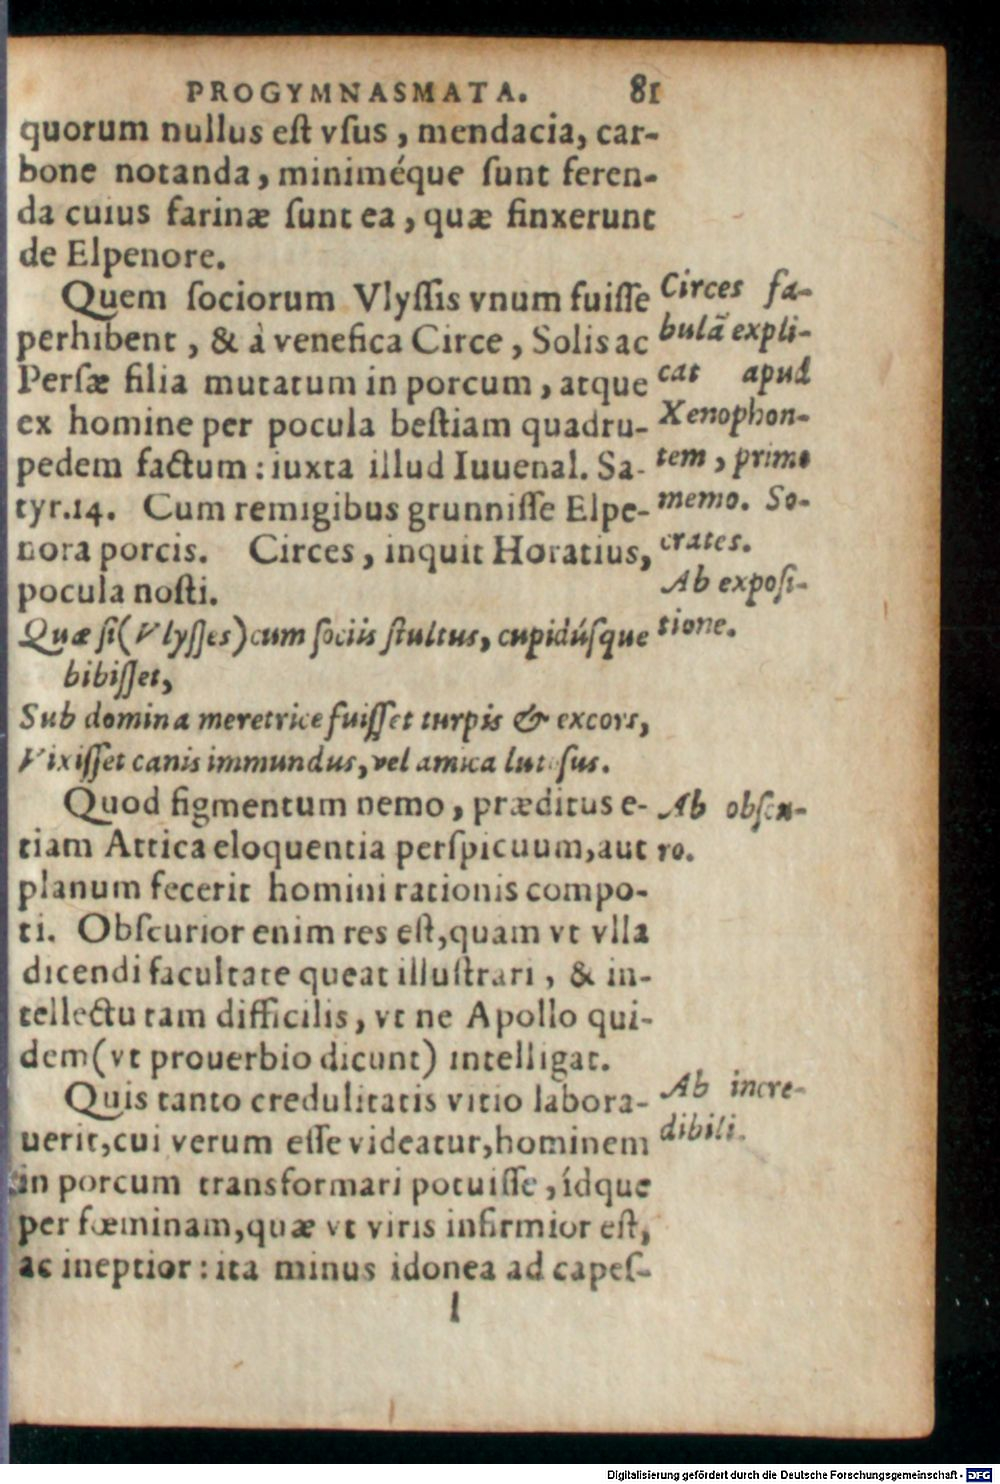 PROGYMNASMATA. 81
quorum nullus eſt vſus, mendacia, car-
bone notanda, miniméque ſunt feren-
da cuius farinæ ſunt ea, quæ finxerunt
de Elpenore.
Quem ſociorum Vlyſſis vnum fuiſſe
perhibent, & à venefica Circe, Solis ac
Perſæ filia mutatum in porcum, atque
ex homine per pocula beſtiam quadru-
pedem factum: iuxta illud Iuuenal. Sa-
tyr.14. Cum remigibus grunniſſe Elpe-
nora porcis. Circes, inquit Horatius,
pocula noſti.
Quæ ſi (Vlyſſes) cum ſociis ſtultus, cupidúſque
bibiſſet,
Sub domina meretrice fuiſſet turpis & excors,
Vixiſſet canis immundus, vel amica luto ſus.
Quod figmentum nemo, præditus e-
tiam Attica eloquentia perſpicuum, aut
planum fecerit homini rationis compo-
ti. Obſcurior enim res eſt, quam vt vlla
dicendi facultate queat illuſtrari, & in-
tellectu tam difficilis, vt ne Apollo qui-
dem (vt prouerbio dicunt) intelligat.
Quis tanto credulitatis vitio labora-
uerit, cui verum eſſe videatur, hominem
in porcum transformari potuiſſe, ídque
per fœminam, quæ vt viris infirmior eſt,
ac ineptior: ita minus idonea ad capeſ-
l
Circes fa-
bulã expli-
cat apud
Xenophon-
tem, primo
memo. So-
crates.
Ab expoſi-
tione.
Ab obſcu-
ro.
Ab incre-
dibili.
Digitalisierung gefördert durch die Deutsche Forschungsgemeinschaft - DFG